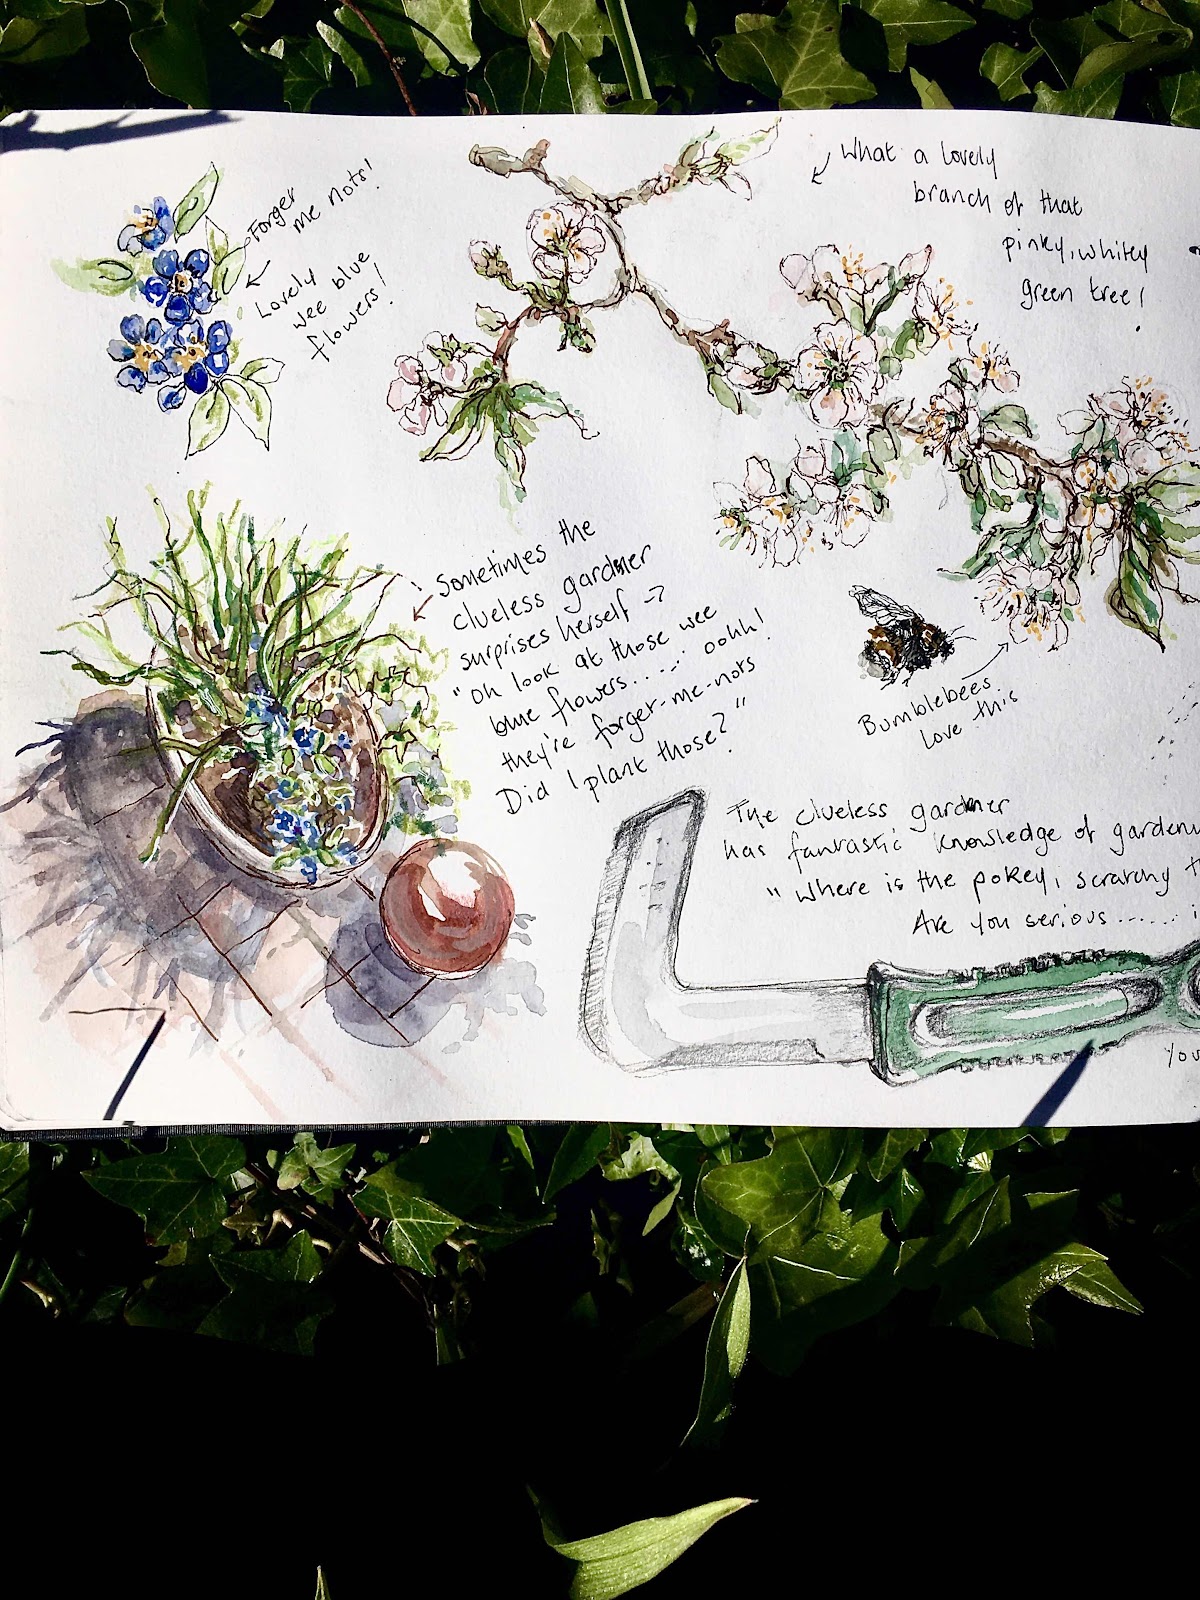 Forget
me nots!
Lovely
wee blue
flowers!
What a lovely
branch of that
pinky, whitey
green tree!
Sometimes the
clueless gardner
surprises herself →
"Oh look at those wee
blue flowers..... oohh!
they're forget-me-nots
Did I plant those?"
Bumblebees
love this
The clueless gardner
has fantastic knowledge of
"Where is the pokey, scratchy
Are you serious......